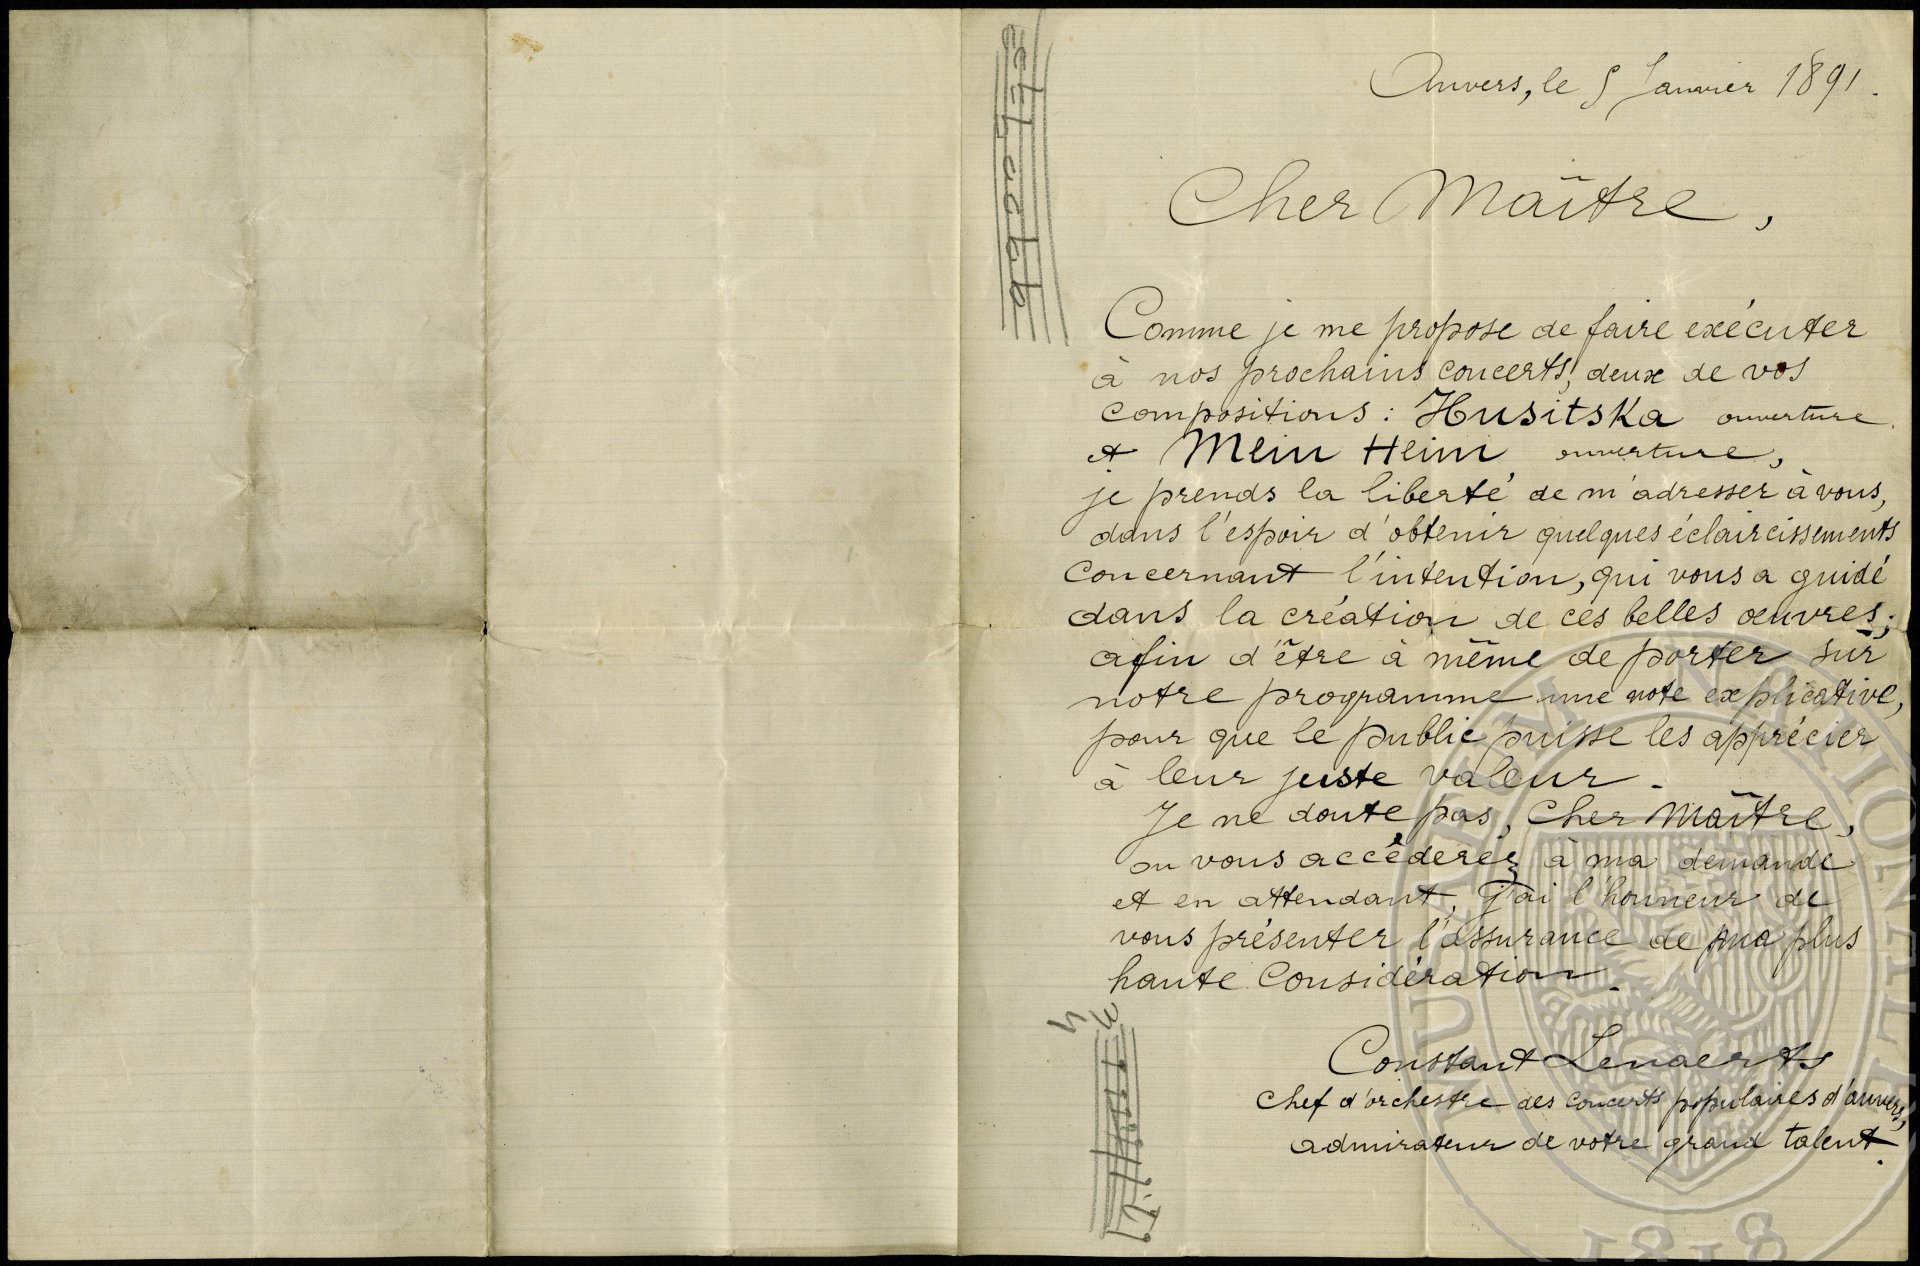 Anvers, le 5 Janvier 1891.
Cher Maître,
Comme je me propose de faire exécuter
à nos prochains concerts, deux de vos
compositions : Husitska ouverture
et Mein Heim ouverture,
je prends la liberté de m'adresser à vous,
dans l'espoir d'obtenir quelques éclaircissements
concernant l'intention, qui vous a guidé
dans la création de ces belles œuvres;
afin d'être à même de porter sur
notre programme une note explicative,
pour que le public puisse les apprécier
à leur juste valeur.
Je ne doute pas, Cher Maître,
ou vous accéderez à ma demande
et en attendant, j'ai l'honneur de
vous présenter l'assurance de ma plus
haute considération.
Constant Lenaerts
Chef d'orchestre des concerts populaires d'anvers,
admirateur de votre grand talent.
MUSAEUM NATIONALE
1818